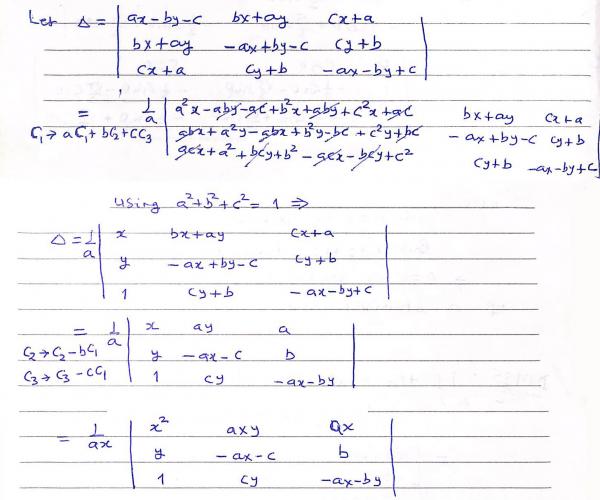 Let Δ = | ax-by-c bx+ay cx+a |
| bx+ay -ax+by-c cy+b |
| cx+a cy+b -ax-by+c |
= 1/a | a²x-aby-ac+b²x+aby+c²x+ac bx+ay cx+a |
C₁→aC₁+bC₂+cC₃ | abx+a²y-abx+b²y-bc+c²y+bc -ax+by-c cy+b |
| acx+a²+bcy+b²-acx-bcy+c² cy+b -ax-by+c |
using a²+b²+c²=1 ⇒
Δ = 1/a | x bx+ay cx+a |
| y -ax+by-c cy+b |
| 1 cy+b -ax-by+c |
= 1/a | x ay a |
C₂→C₂-bC₁ | y -ax-c b |
C₃→C₃-cC₁ | 1 cy -ax-by |
= 1/ax | x² axy ax |
| y -ax-c b |
| 1 cy -ax-by |